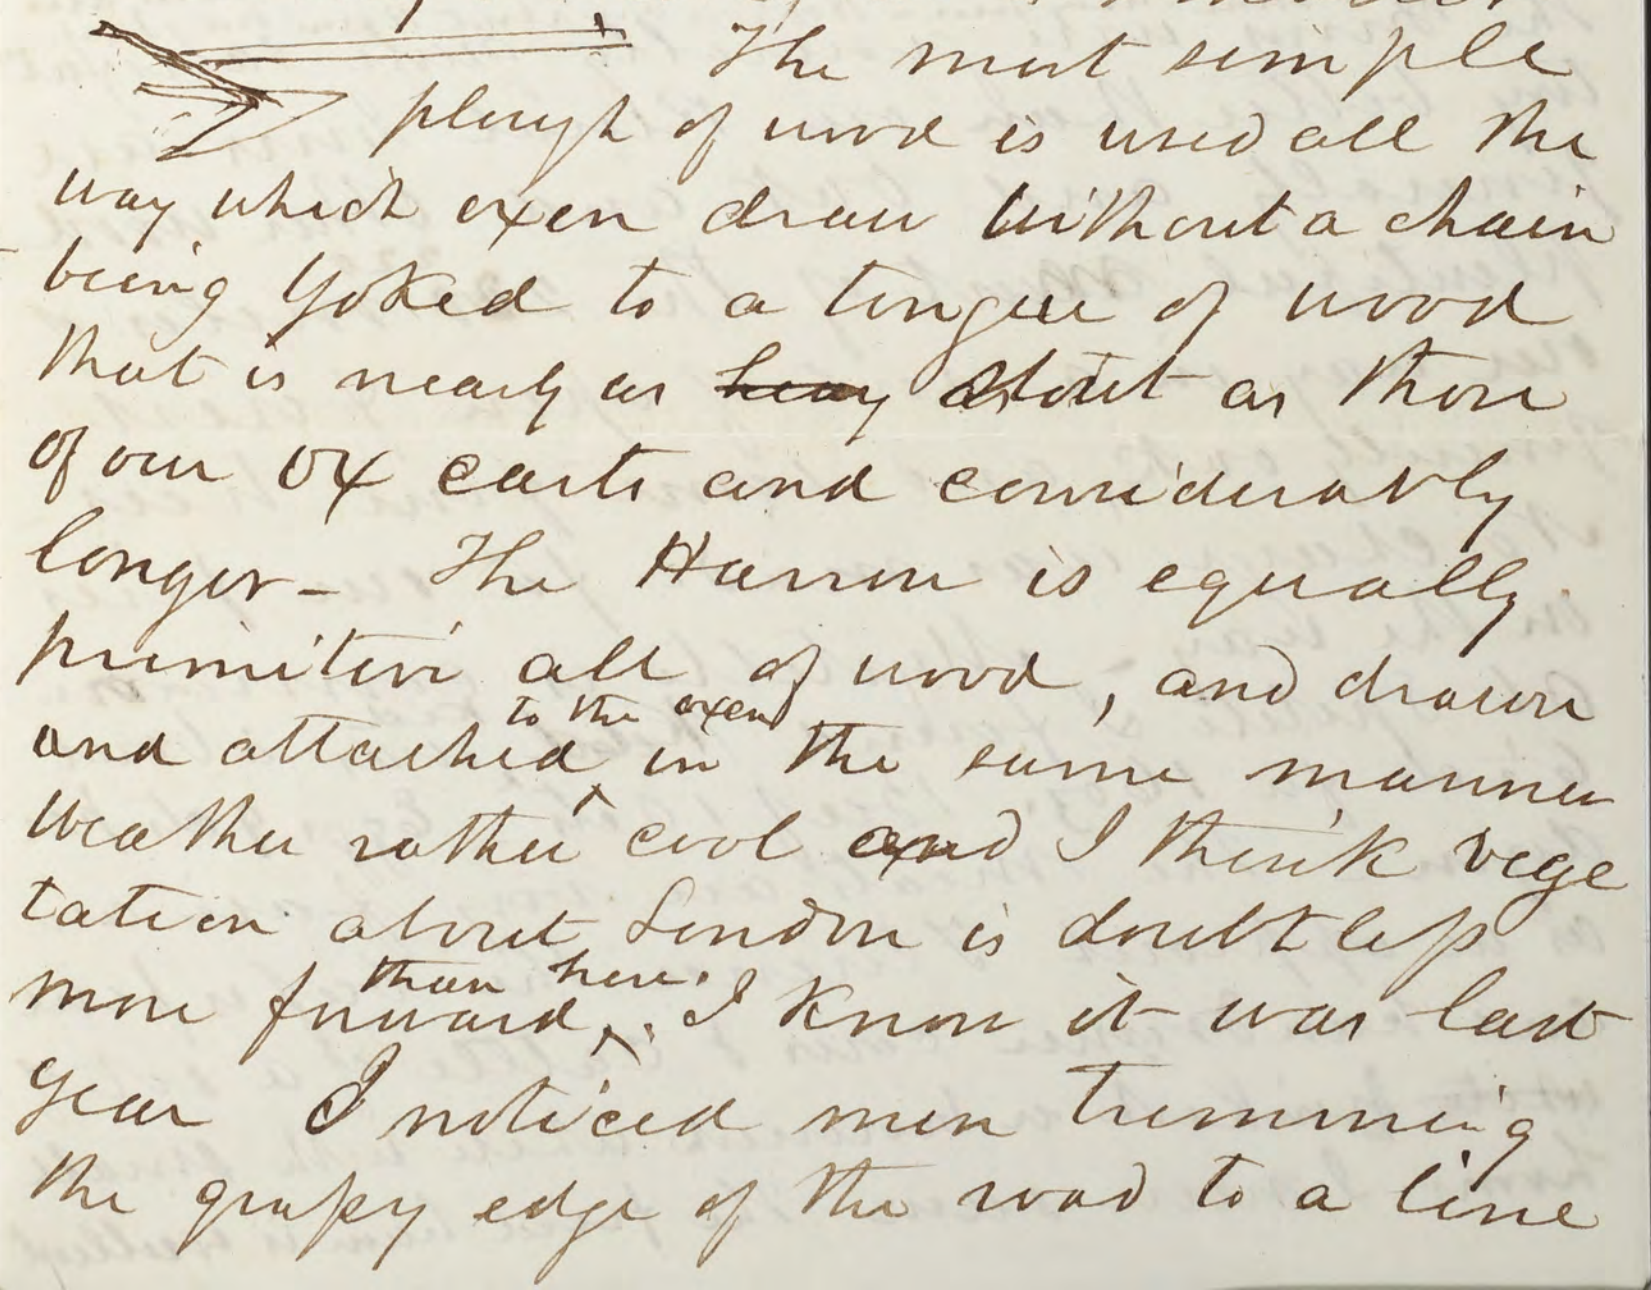 The most simple
plough of wood is used all the
way which oxen draw without a chain
being yoked to a tongue of wood
that is nearly as heavy stout as those
of our ox carts and considerably
longer - The Harrow is equally
primitive all of wood, and drawn
and attached to the oxen in the same manner
Weather rather cool and I think vege
tation about London is doubtless
more forward, than here. I know it was last
year I noticed men trimming
the grassy edge of the road to a line